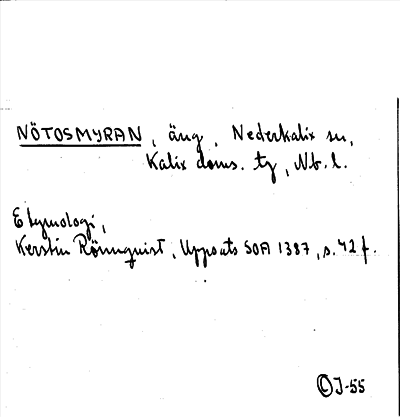 NÖTOSMYRAN, äng, Nederkalix sn,
Kalix doms. tg, Nb. l.
Etymologi,
Kerstin Rönnquist, Uppsats SOA 1387, s. 42 f.
(L) J-55